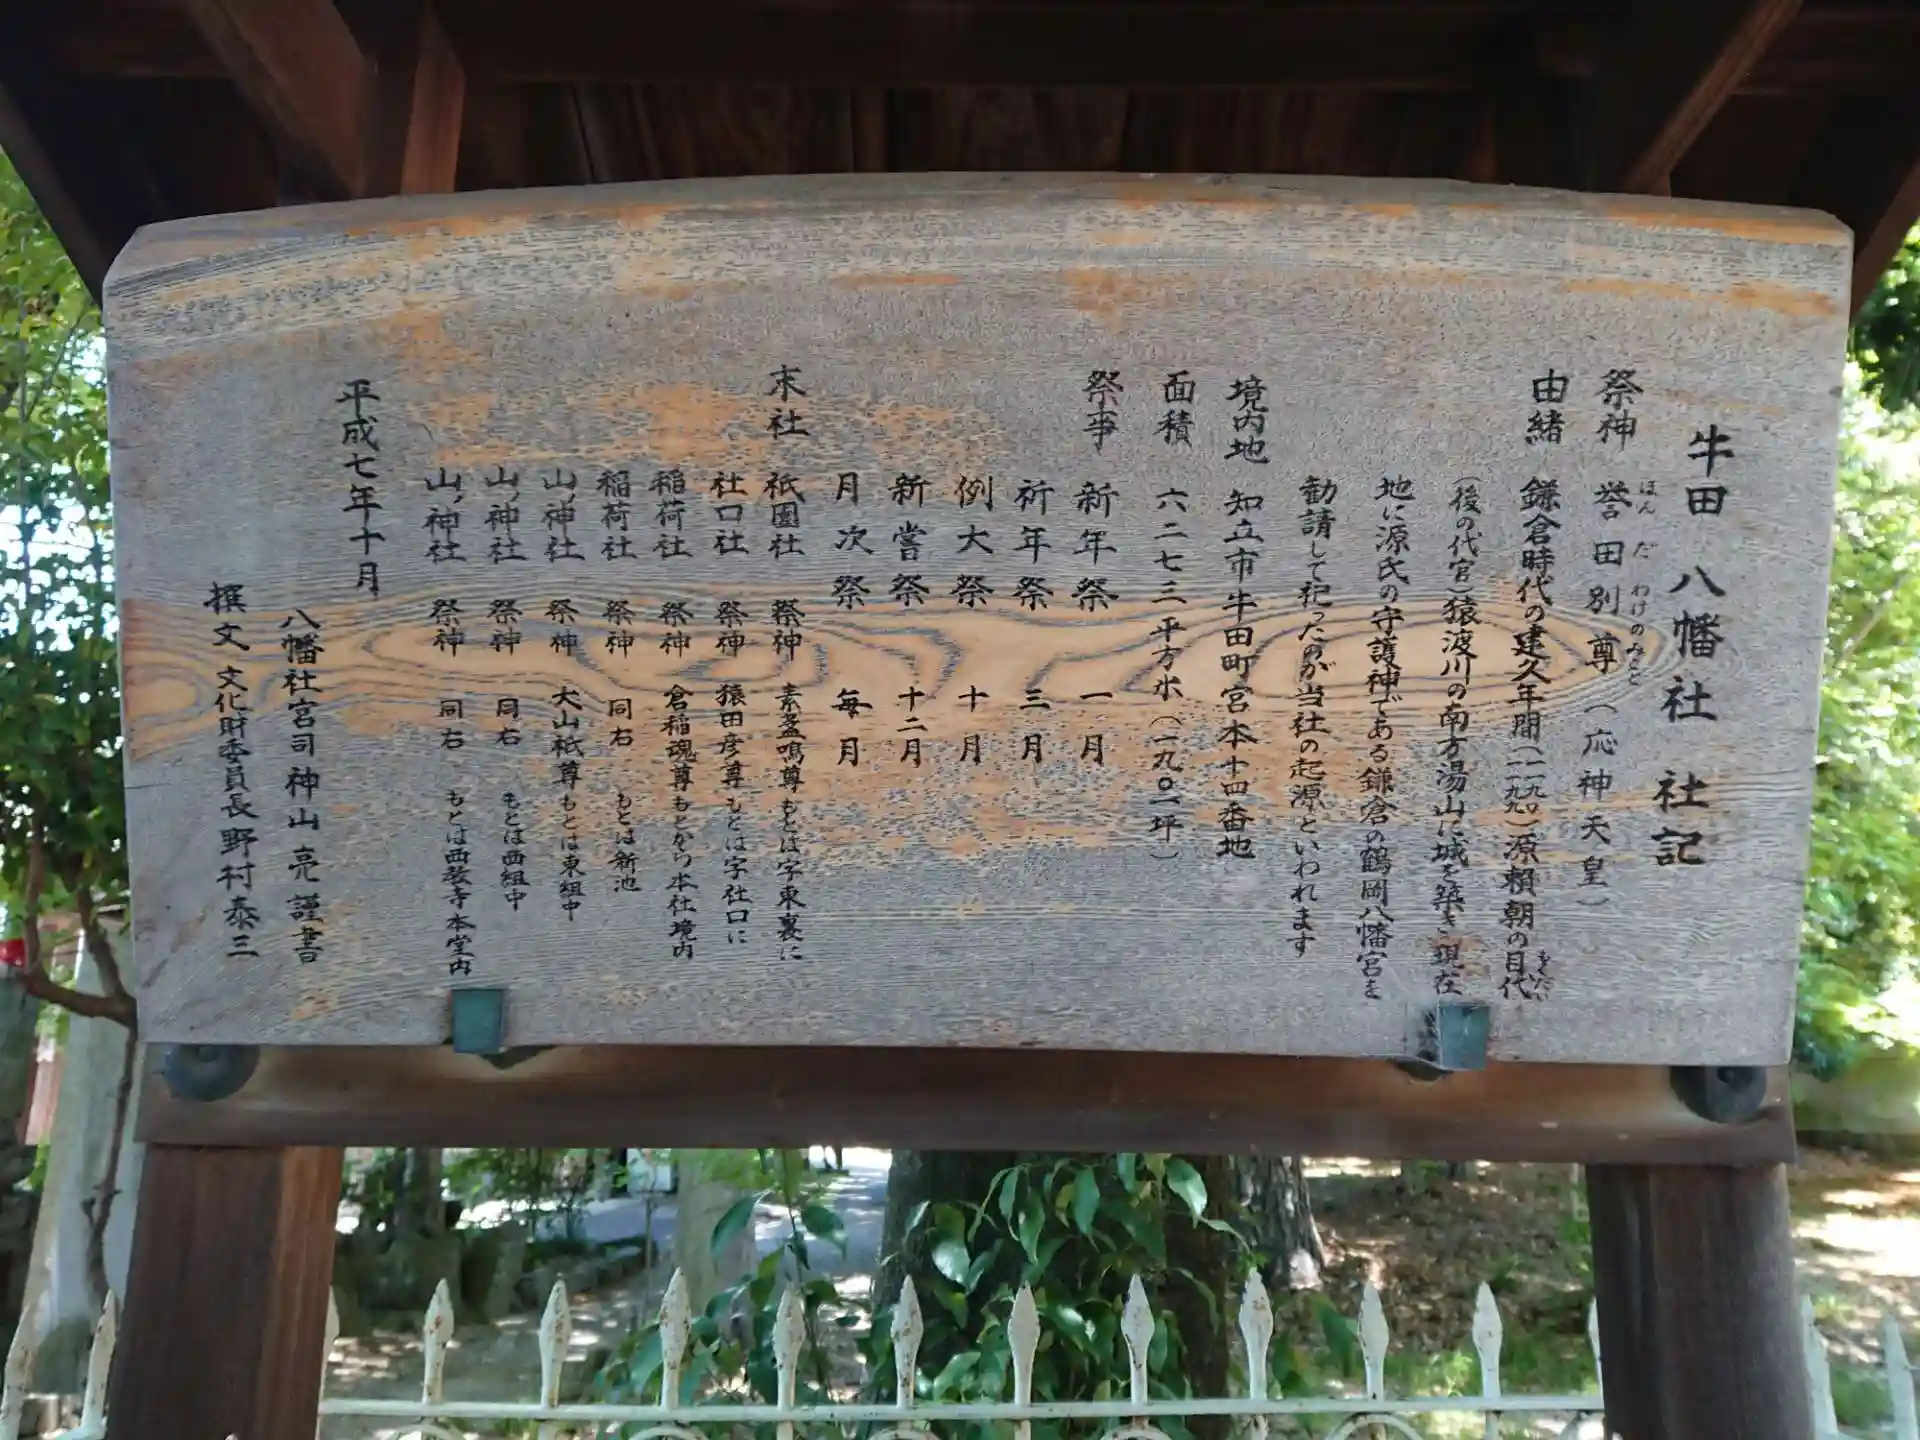 牛田八幡社 社記
祭神 誉田別尊（応神天皇）
ほんだわけのみこと
由緒 鎌倉時代の建久年間（一一九〇 一一九九）源頼朝の目代
もくだい
（後の代官）猿渡川の南方湯山に城を築き現在
地に源氏の守護神である鎌倉の鶴岡八幡宮を
勧請して祀ったのが当社の起源といわれます
境内地 知立市牛田町宮本十四番地
面積 六二七三平方米（一九〇一坪）
祭事 新年祭 一月
祈年祭 三月
例大祭 十月
新嘗祭 十二月
月次祭 毎月
末社 祇園社 祭神 素盞鳴尊 もとは字東裏に
社口社 祭神 猿田彦尊 もとは字社口に
稲荷社 祭神 倉稲魂尊 もとから本社境内
稲荷社 祭神 同右 もとは新池
山ノ神社 祭神 大山祇尊 もとは東組中
山ノ神社 祭神 同右 もとは西組中
山ノ神社 祭神 同右 もとは西教寺本堂内
平成七年十月
八幡社宮司 神山亮 謹書
撰文 文化財委員長 野村泰三